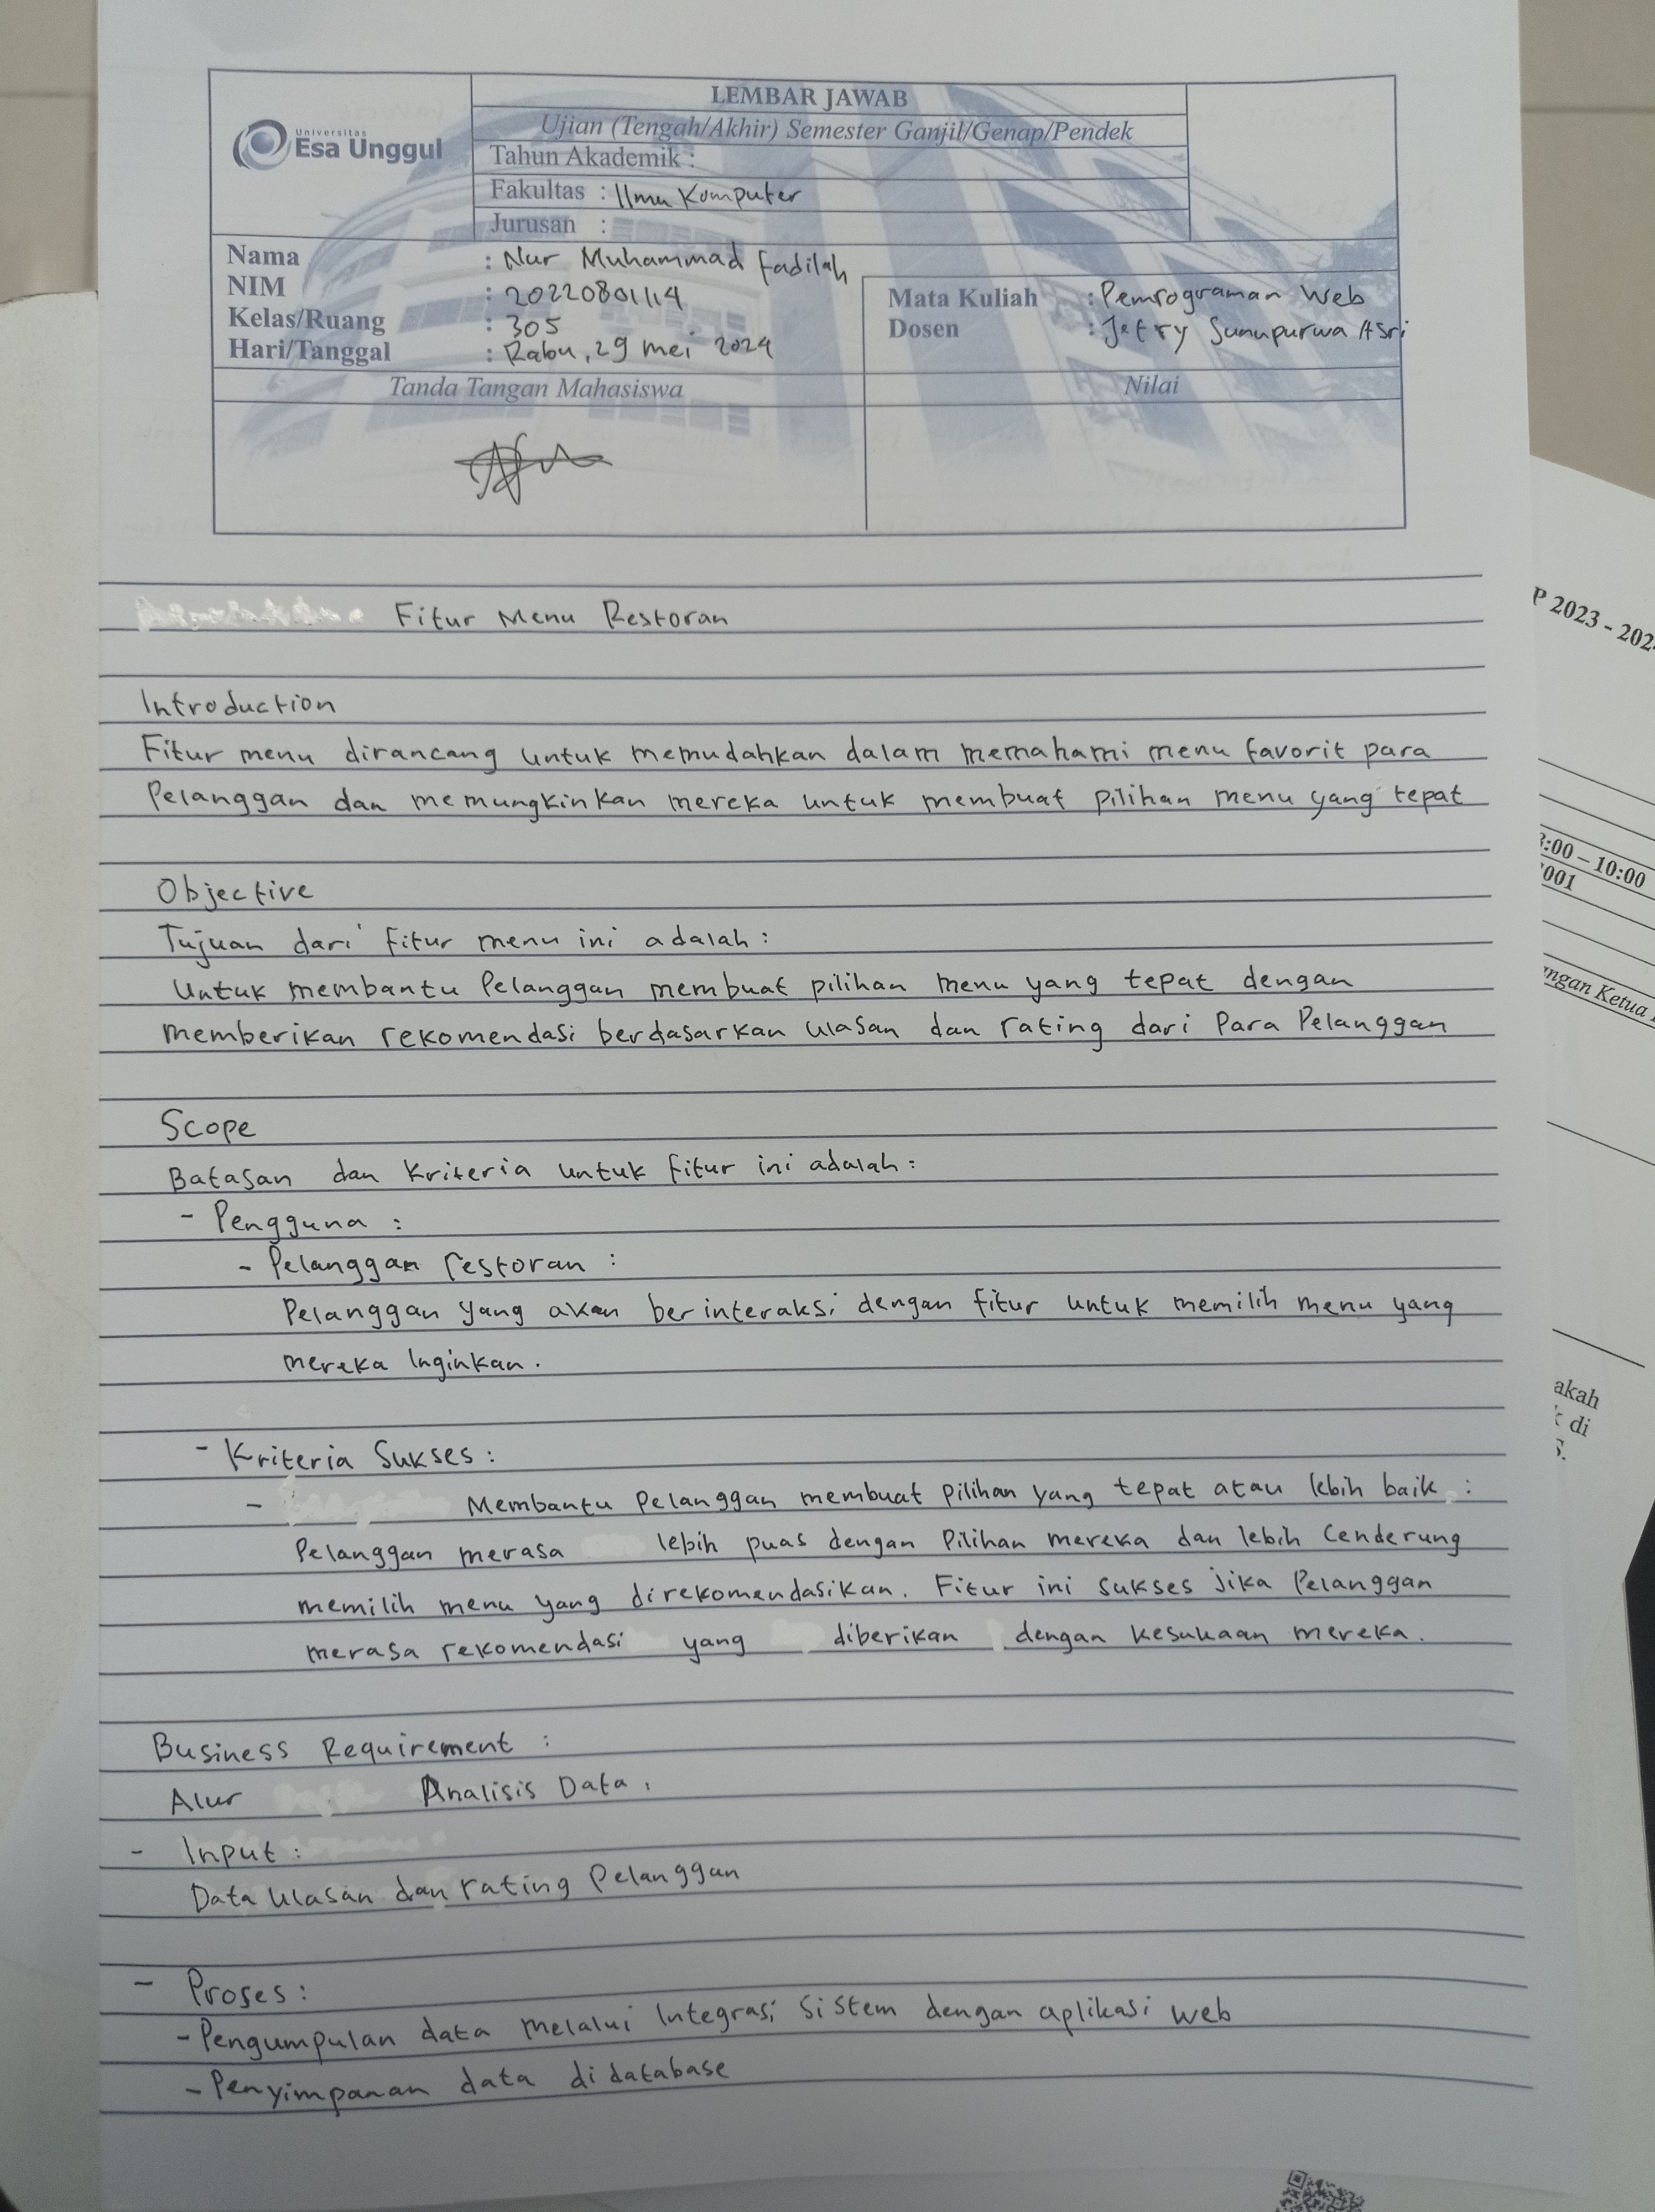 Universitas
Esa Unggul
LEMBAR JAWAB
Ujian (Tengah/Akhir) Semester Ganjil/Genap/Pendek
Tahun Akademik :
Fakultas : Ilmu Komputer
Jurusan :
Nama : Nur Muhammad Fadilah
NIM : 20220801114
Kelas/Ruang : 305
Hari/Tanggal : Rabu, 29 mei 2024
Mata Kuliah : Pemrograman Web
Dosen : Jefry Sunupurwa Asri
Tanda Tangan Mahasiswa
Nilai
Fitur Menu Restoran
Introduction
Fitur menu dirancang untuk memudahkan dalam memahami menu favorit para
Pelanggan dan memungkinkan mereka untuk membuat pilihan menu yang tepat
Objective
Tujuan dari fitur menu ini adalah :
Untuk membantu Pelanggan membuat pilihan menu yang tepat dengan
memberikan rekomendasi berdasarkan ulasan dan rating dari Para Pelanggan
Scope
Batasan dan Kriteria untuk fitur ini adalah :
- Pengguna :
- Pelanggan restoran :
Pelanggan yang akan berinteraksi dengan fitur untuk memilih menu yang
mereka Inginkan.
- Kriteria Sukses :
- Membantu Pelanggan membuat Pilihan yang tepat atau lebih baik :
Pelanggan merasa lebih puas dengan Pilihan mereka dan lebih Cenderung
memilih menu yang direkomendasikan. Fitur ini sukses jika Pelanggan
merasa rekomendasi yang diberikan dengan kesukaan mereka.
Business Requirement :
Alur Analisis Data :
- Input :
Data ulasan dan rating Pelanggan
- Proses :
- Pengumpulan data melalui Integrasi Sistem dengan aplikasi web
- Penyimpanan data di database
P 2023 - 202
:00 – 10:00
001
ngan Ketua
akah
di
S.